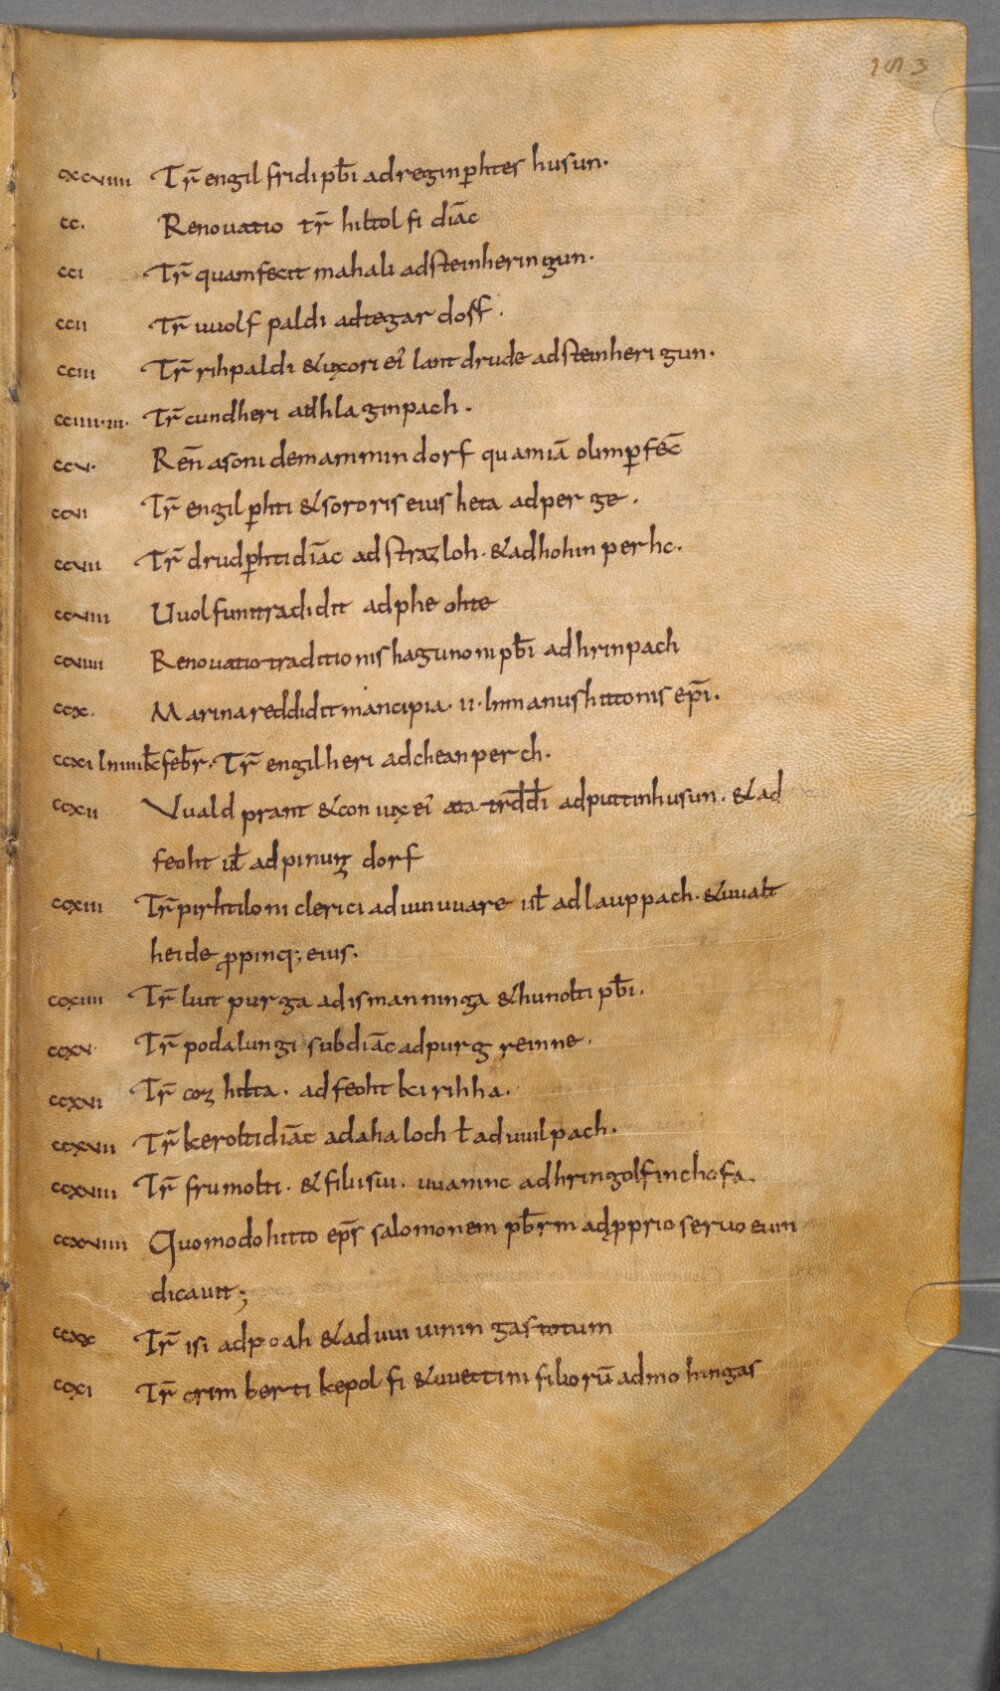 153
cxcviiii Tr̄ engilfridi pb̄i ad reginꝑhtes husun.
cc. Renouatio tr̄ hiltolfi diāc
cci Tr̄ quam fecit mahali ad steinheringun.
ccii Tr̄ uuolfpaldi ad tegardosf.
cciii Tr̄ rihpaldi & uxori ei᷒ lantdrude ad steinherigun.
cciiii·iii· Tr̄ cundheri ad hlaginpach.
ccv. Ren̄ asoni de mammindorf quam iā olim ꝑfec̄
ccvi Tr̄ engilꝑhti & sororis eius heta ad perge.
ccvii Tr̄ drudꝑhti diāc ad strazloh. & ad hohinperhc.
ccviii Uuolfuni tradidit ad pheohte
ccviiii Renouatio traditionis hagunoni pb̄i ad hrinpach
ccx. Marina reddidit mancipia. ii. In manus hittonis ep̄i.
ccxi In iiii kł febr̄. Tr̄ engilheri ad cheanperch.
ccxii Vualdprant & coniux ei᷒ ata tr̄dd̄i ad puttinhusun. & ad
feoht uł ad pinuzdorf
ccxiii Tr̄ pirhtiloni clerici ad uuiuuare uł ad lauppach. & uualt
heide ꝓpinq; eius.
ccxiiii Tr̄ luitpurga ad ismanninga & hunolti pb̄i.
ccxv Tr̄ podalungi subdiāc ad purgreinne.
ccxvi Tr̄ cozhilta. ad feohtkirihha.
ccxvii Tr̄ kerolti diāc ad ahaloch ł ad uuilpach.
ccxviii Tr̄ frumolti. & filii sui. uuaninc ad hringolfinchofa
ccxviiii Quomodo hitto ep̄s salomonem pb̄rm ad ꝓprio seruo euin
dicauit;
ccxx Tr̄ isi ad poah & ad uuiuiningas totum
ccxi Tr̄ crimberti kepolfi & uuettini filiorū ad mohingas